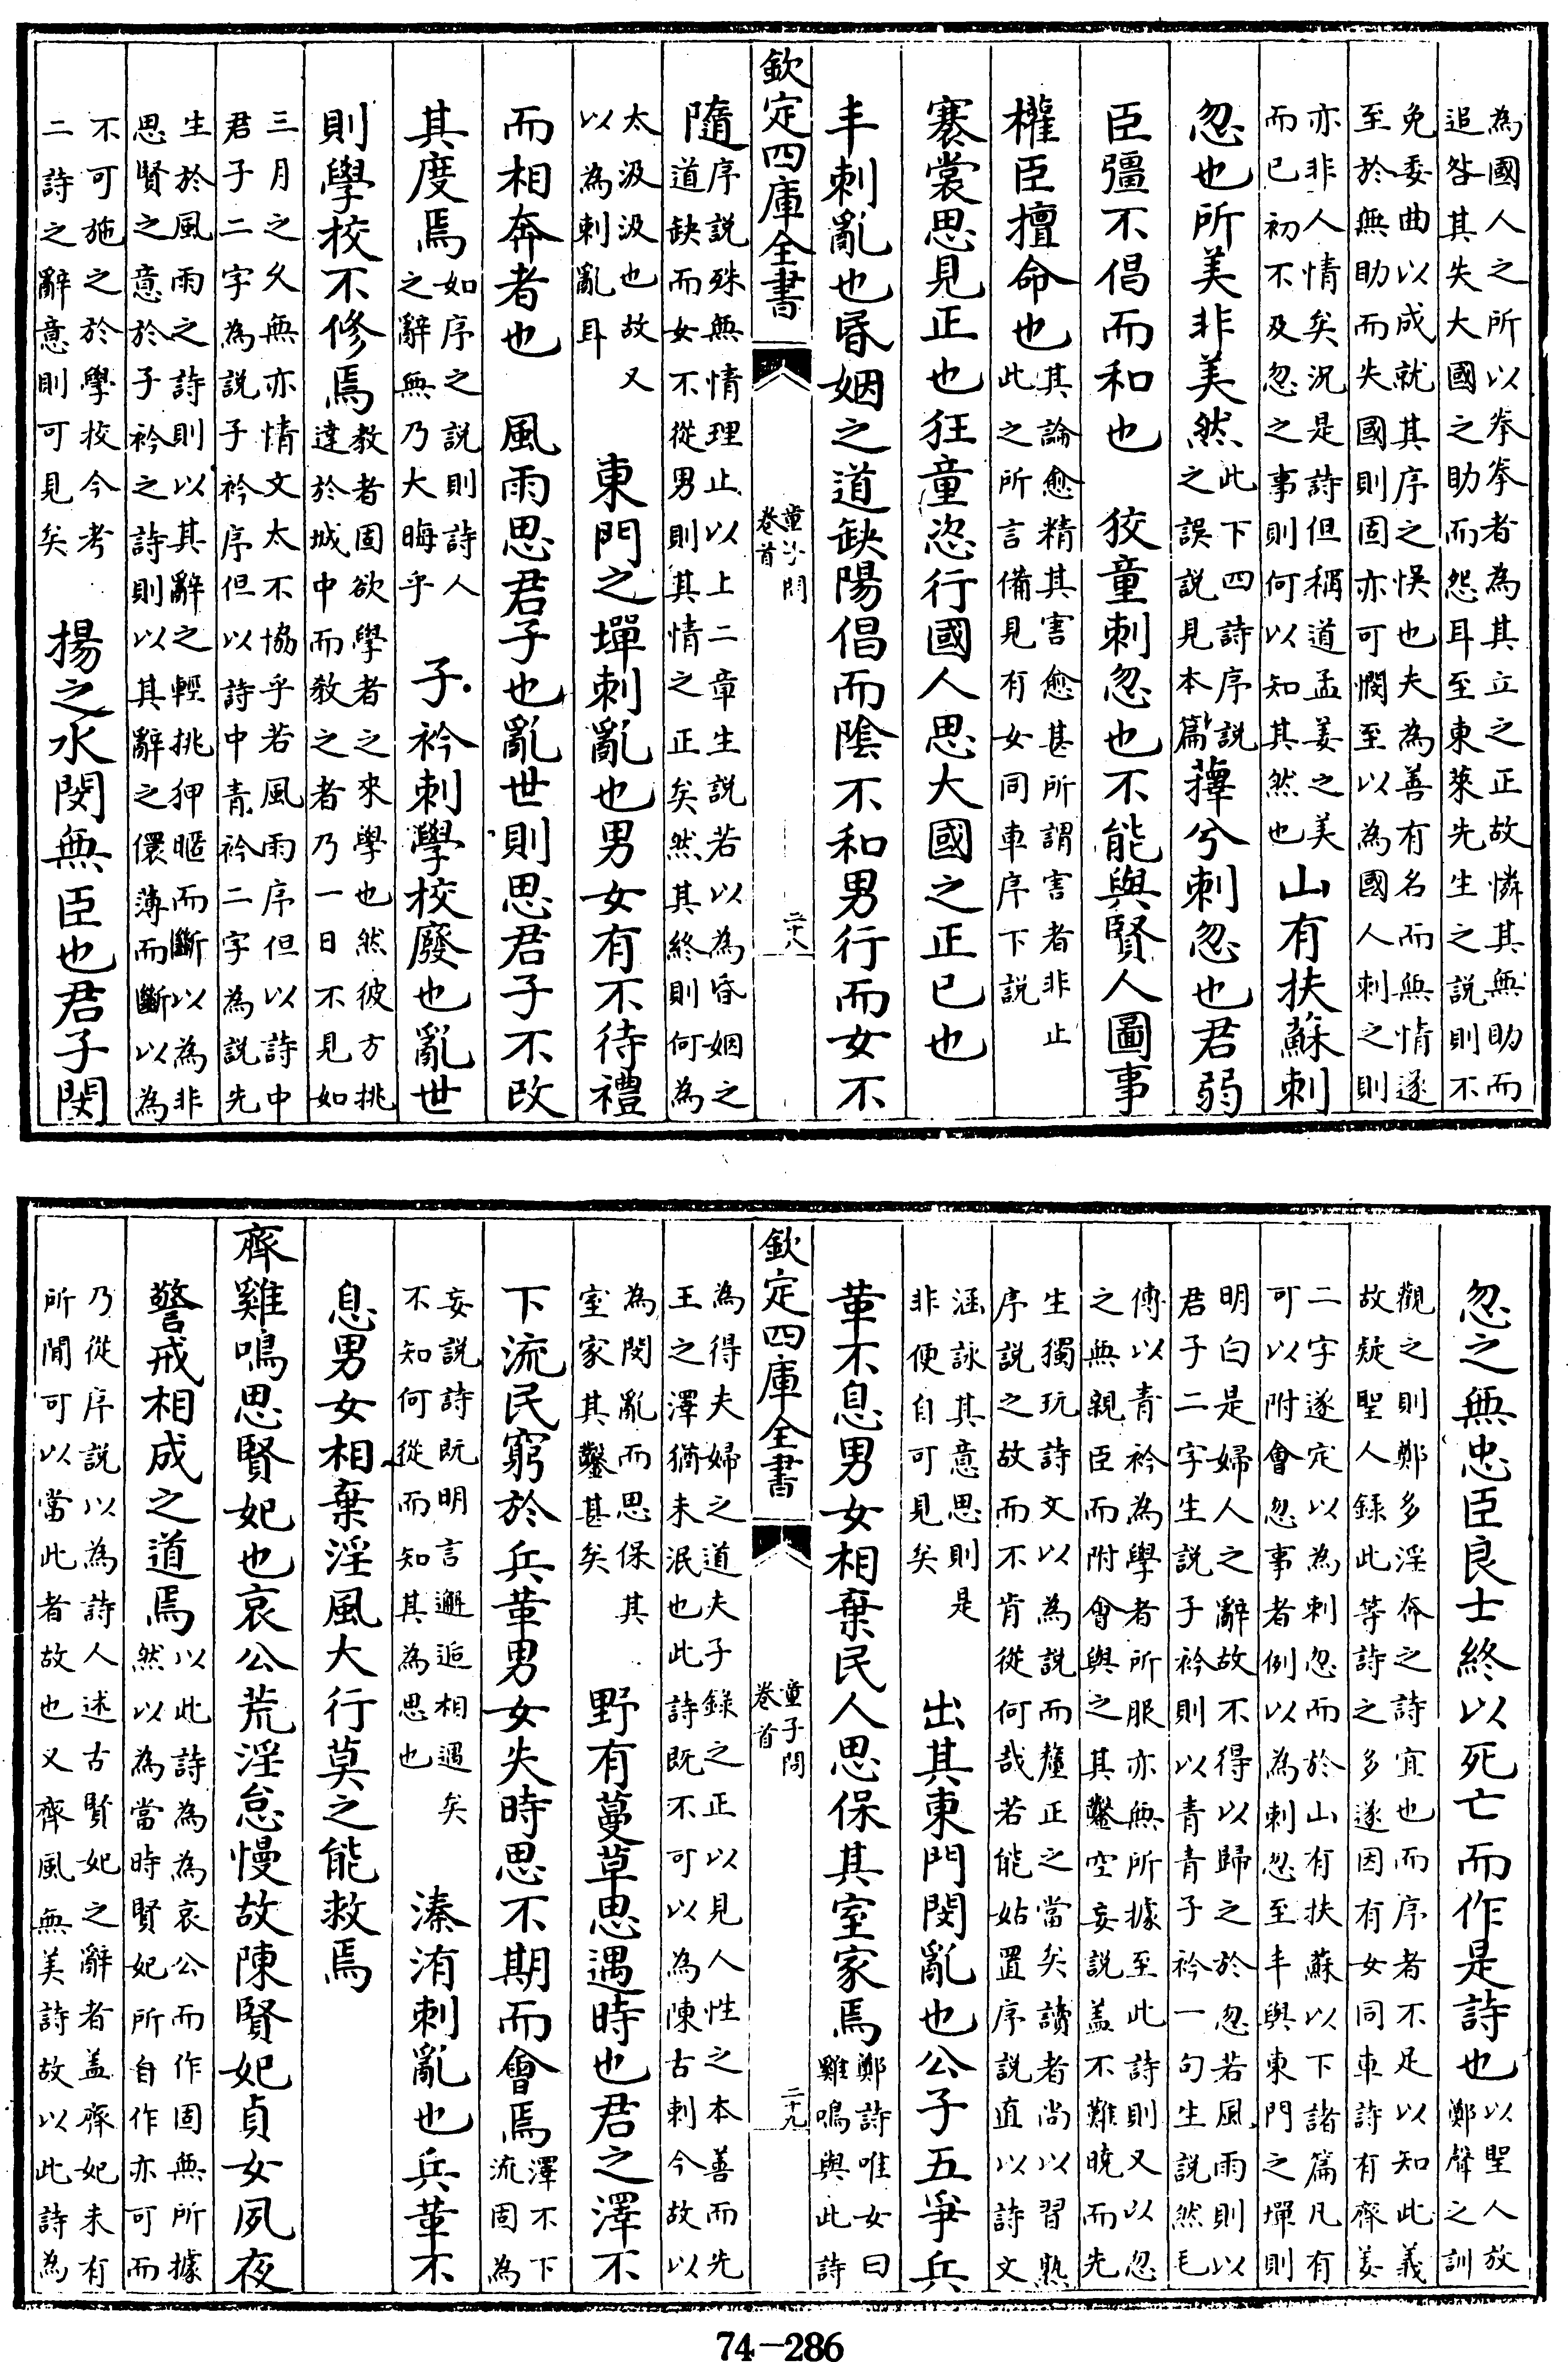 為國人之所以拳拳者為其立之正故憐其無助而
追咎其失大國之助而怨耳至東萊先生之説則不
免委曲以成就其序之悞也夫為善有名而無情遂
至於無助而失國則固亦可憫至以為國人刺之則
亦非人情矣況是詩但稱道孟姜之美
而已初不及忽之事則何以知其然也
山有扶蘇刺
忽也所美非美然
此下四詩序説
之誤説見本篇
蘀兮刺忽也君弱
臣彊不倡而和也 狡童刺忽也不能與賢人圖事
權臣擅命也
其論愈精其害愈甚所謂害者非止
此之所言備見有女同車序下説
褰裳思見正也狂童恣行國人思大國之正已也
丰刺亂也昏姻之道缺陽倡而陰不和男行而女不
欽定四庫全書
童子問
卷首
二十八
隨
序説殊無情理止以上二章生説若以為昏姻之
道缺而女不從男則其情之正矣然其終則何為
太汲汲也故又
以為刺亂耳
東門之墠刺亂也男女有不待禮
而相奔者也 風雨思君子也亂世則思君子不改
其度焉
如序之説則詩人
之辭無乃大晦乎
子衿刺學校廢也亂世
則學校不修焉
教者固欲學者之來學也然彼方挑
達於城中而教之者乃一日不見如
三月之久無亦情文太不協乎若風雨序但以詩中
君子二字為説子衿序但以詩中青衿二字為説先
生於風雨之詩則以其辭之輕挑狎暱而斷以為非
思賢之意於子衿之詩則以其辭之儇薄而斷以為
不可施之於學校今考
二詩之辭意則可見矣
揚之水閔無臣也君子閔
忽之無忠臣良士終以死亡而作是詩也
以聖人放
鄭聲之訓
觀之則鄭多淫奔之詩宜也而序者不足以知此義
故疑聖人錄此等詩之多遂因有女同車詩有齊姜
二字遂定以為刺忽而於山有扶蘇以下諸篇凡有
可以附會忽事者例以為刺忽至丰與東門之墠則
明白是婦人之辭故不得以歸之於忽若風雨則以
君子二字生説子衿則以青青子衿一句生説然毛
傳以青衿為學者所服亦無所據至此詩則又以忽
之無親臣而附會與之其鑿空妄説盖不難曉而先
生獨玩詩文以為説而釐正之當矣讀者尚以習熟
序説之故而不肯從何哉若能姑置序説直以詩文
涵詠其意思則是
非便自可見矣
出其東門閔亂也公子五爭兵
革不息男女相棄民人思保其室家焉
鄭詩唯女曰
雞鳴與此詩
欽定四庫全書
童子問
卷首
二十九
為得夫婦之道夫子錄之正以見人性之本善而先
王之澤猶未泯也此詩既不可以為陳古刺今故以
為閔亂而思保其
室家其鑿甚矣
野有蔓草思遇時也君之澤不
下流民窮於兵革男女失時思不期而會焉
澤不下
流固為
妄説詩既明言邂逅相遇矣
不知何從而知其為思也
溱洧刺亂也兵革不
息男女相棄淫風大行莫之能救焉
齊雞鳴思賢妃也哀公荒淫怠慢故陳賢妃貞女夙夜
警戒相成之道焉
以此詩為為哀公而作固無所據
然以為當時賢妃所自作亦可而
乃從序説以為詩人述古賢妃之辭者盖齊妃未有
所聞可以當此者故也又齊風無美詩故以此詩為
74-286